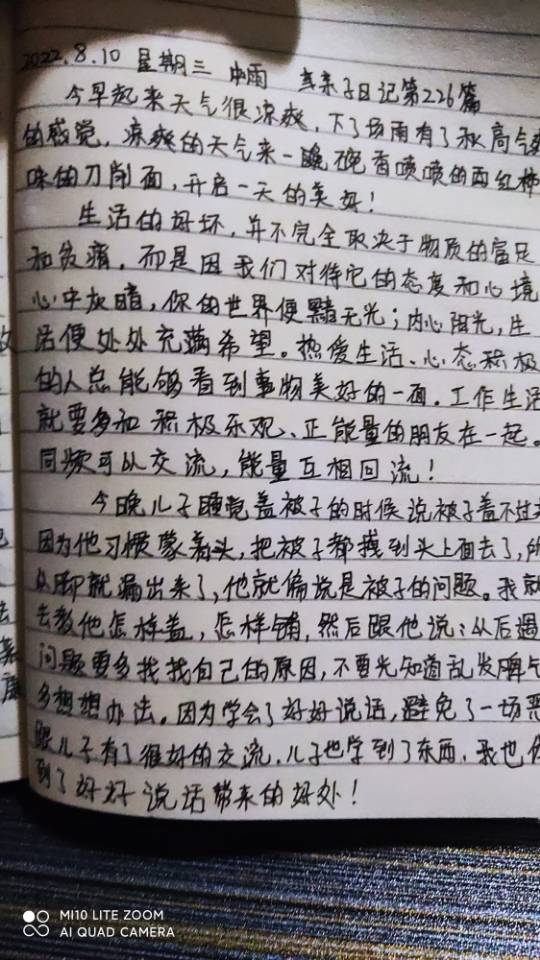 2022.8.10 星期三 中雨 亲子日记第226篇
今早起来天气很凉爽，下了场雨有了秋高气
的感觉，凉爽的天气来一碗香喷喷的西红柿
味的刀削面，开启一天的美好！
生活的好坏，并不完全取决于物质的富足
和贫瘠，而是因我们对待它的态度和心境
心中灰暗，你的世界便黯无光；内心阳光，生
活便处处充满希望。热爱生活、心态积极
的人总能够看到事物美好的一面，工作生活
就要多和积极乐观、正能量的朋友在一起。
同频可以交流，能量互相回流！
今晚儿子睡觉盖被子的时候说被子盖不过
因为他习惯蒙着头，把被子都拽到头上面去了，所
以脚就漏出来了，他就偏说是被子的问题。我就
去教他怎样盖，怎样铺，然后跟他说：以后遇
问题要多找找自己的原因，不要光知道乱发脾气
多想想办法。因为学会了好好说话，避免了一场恶
跟儿子有了很好的交流，儿子也学到了东西，我也
到了好好说话带来的好处！
MI10 LITE ZOOM
AI QUAD CAMERA